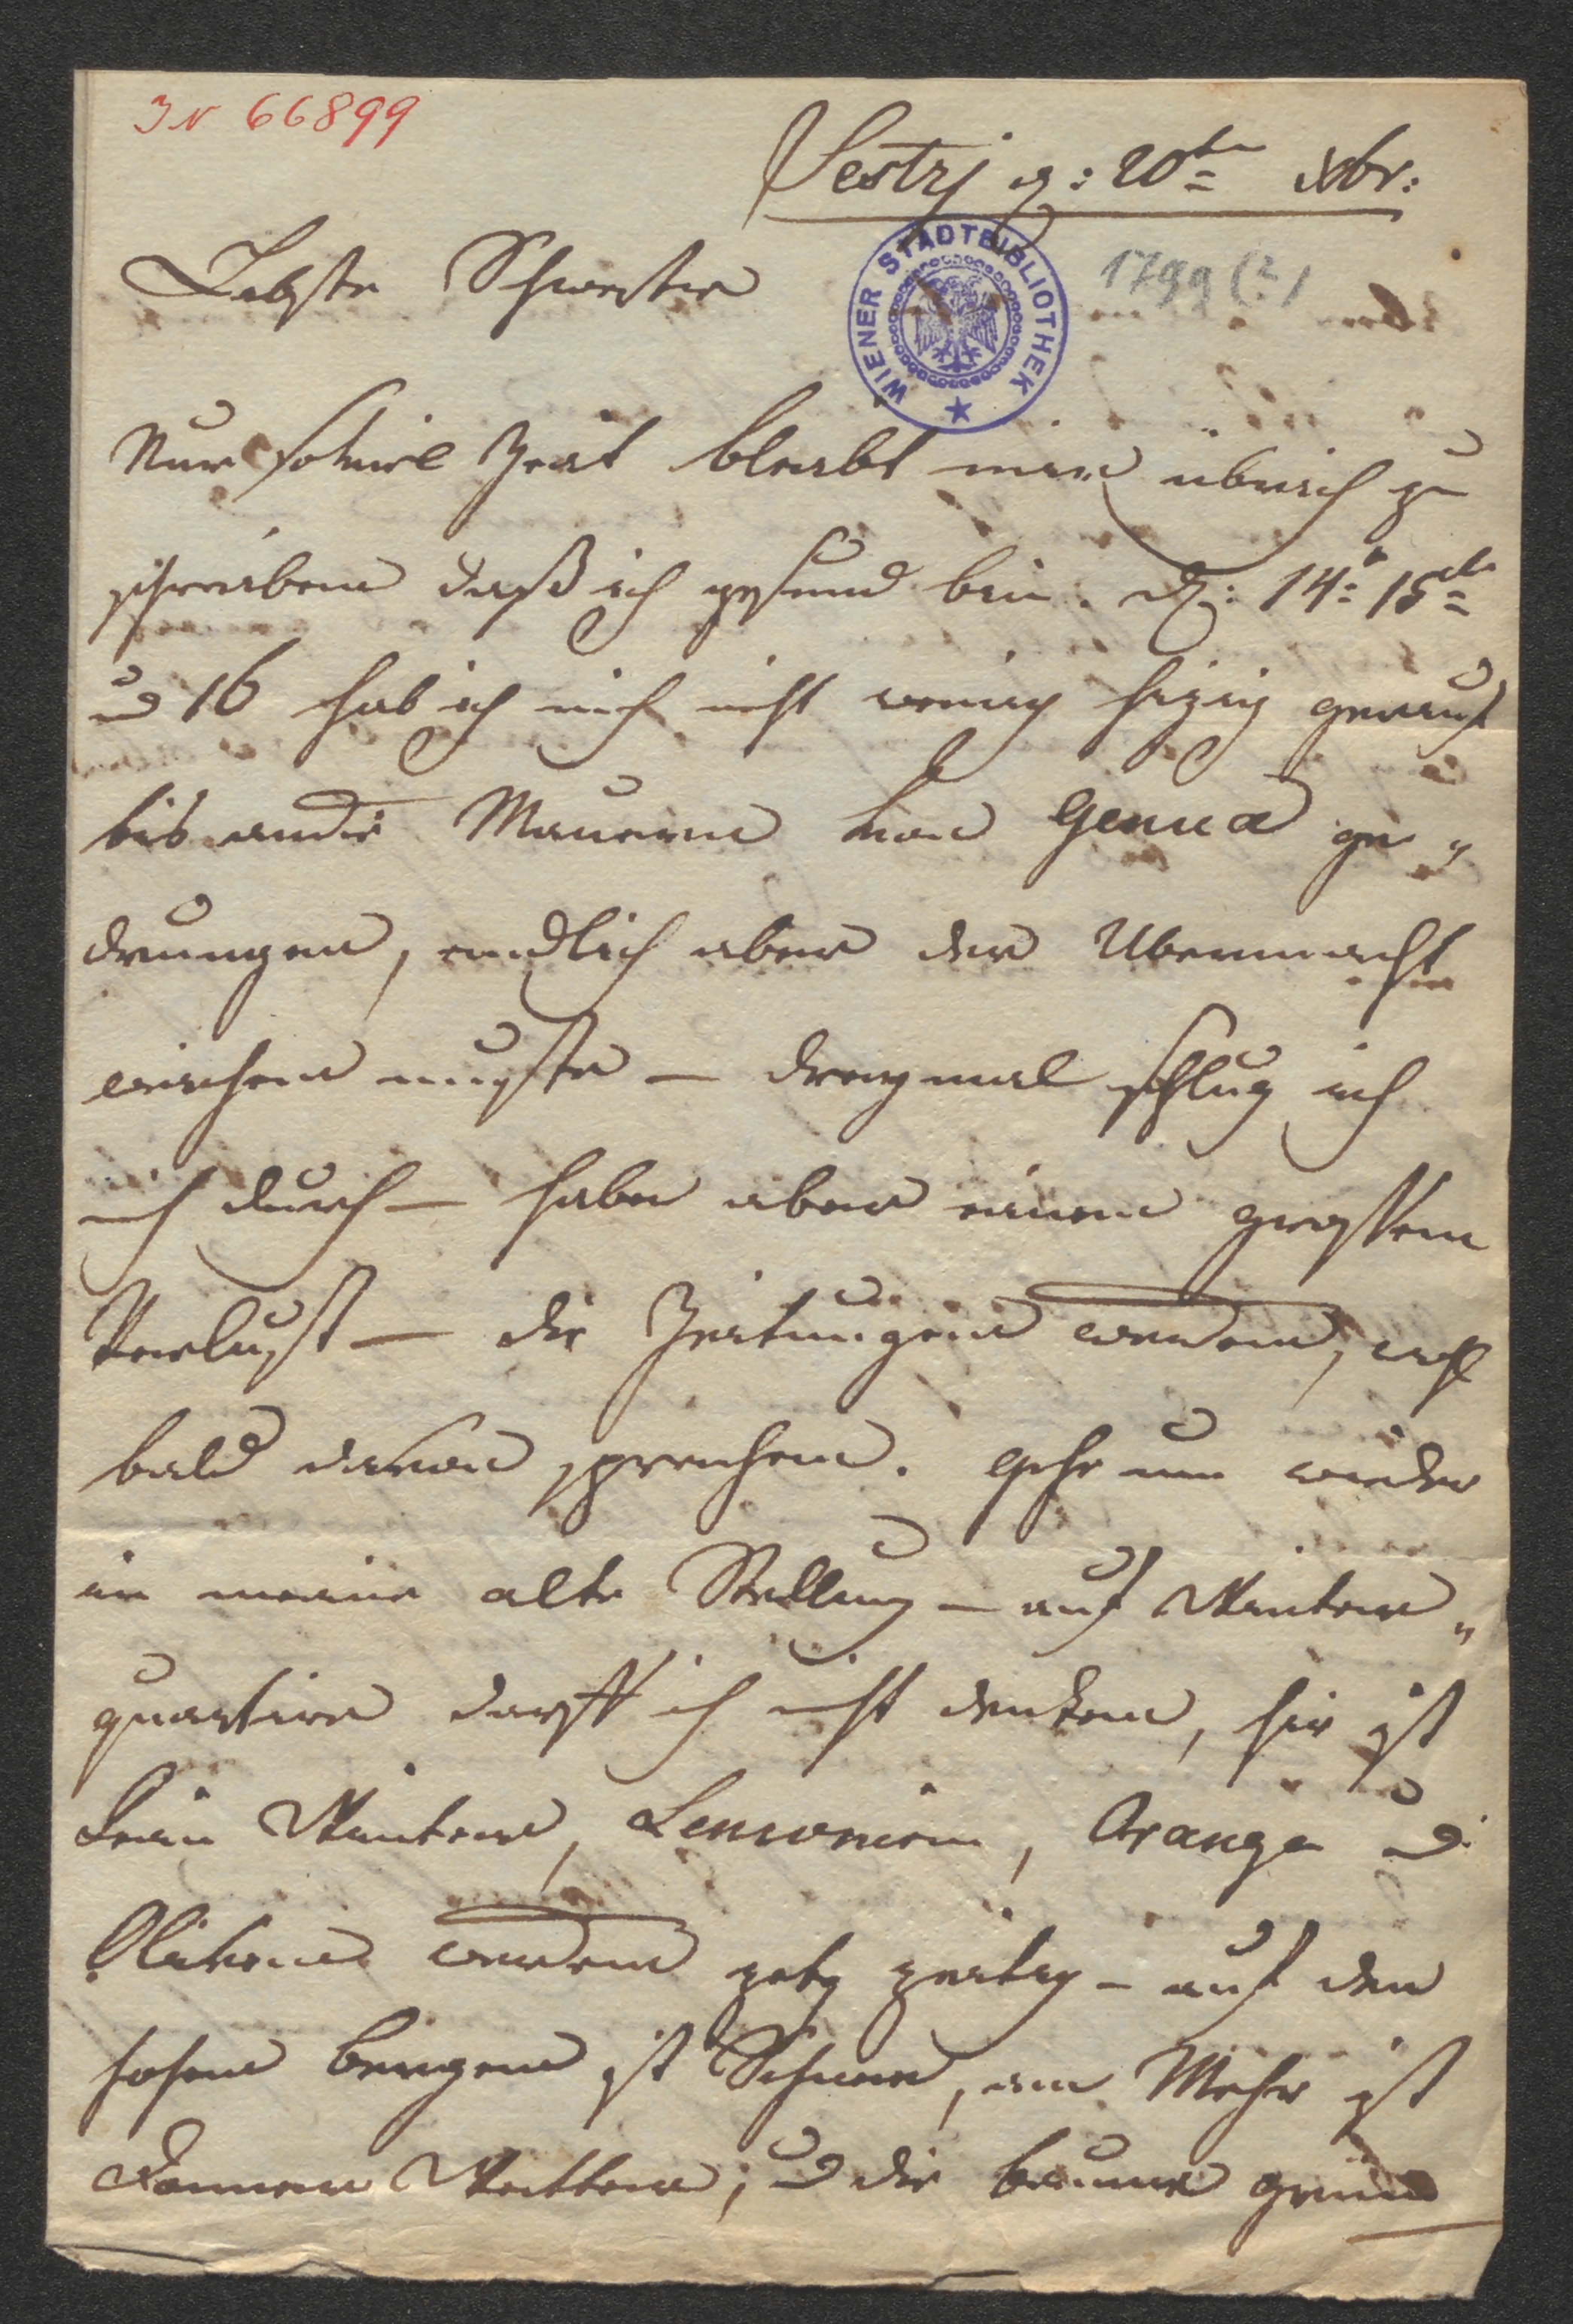 JN 66899
Sestrj d: 20te Xbr:
WIENER STADTBIBLIOTHEK
1799 (?)
Liebste Schwester
Nur soviel Zeit bleibt mir übrich zu
schreiben daß ich gesund bin. d: 14t 15te
und 16 hab ich mich nicht wenig hizig gerauft
bis an die Mauern von Genua ge„
drungen, endlich aber der Ubermacht
weichen muste – dreymal schlug ich
mich durch – habe aber einen grossen
Verlust – die Zeitungen werden, wohl
bald davon sprechen. gehe nun wieder
in meine alte Stellung – auf Winter„
quartire darff ich nicht denken, hir ist
kein Winter, Lemonien, Orange und
Oliven werden jetz zeitig – auf den
hohen bergen ist Schnee, am Mehr ist
Sommer Wetter; und die beume grün